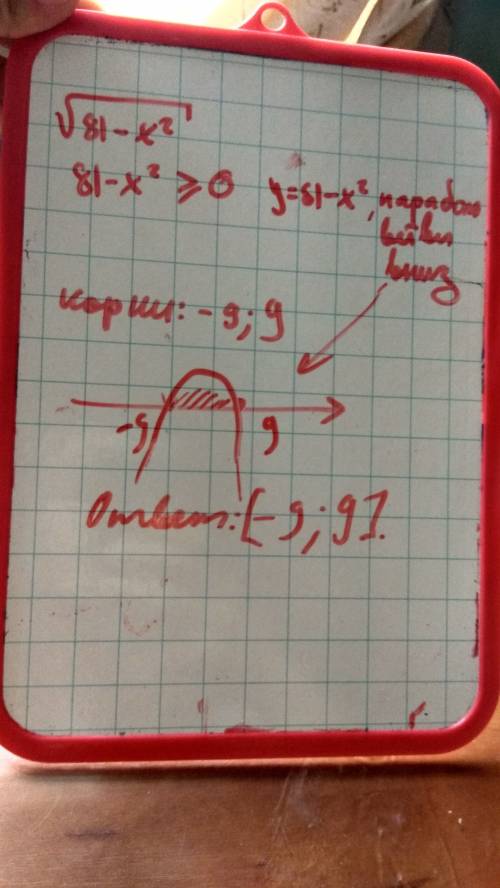 √81-x²
81-x² ≥ 0
y=81-x², парабола
ветви
вниз
корни: -9; 9
-9 9
Ответ: [-9; 9].